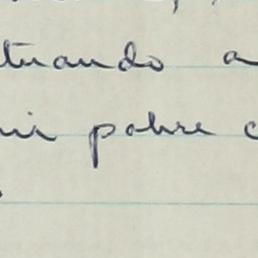 tuando a
mi pobre c